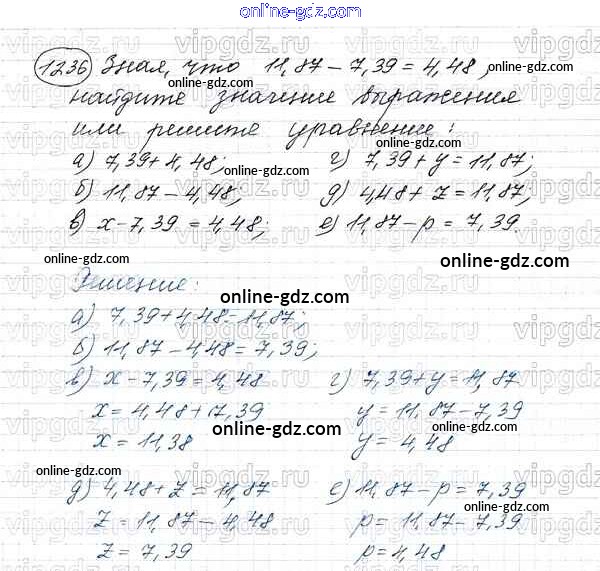 online-gdz.com
1236 Зная, что 11,87 - 7,39 = 4,48,
найдите значение выражения
или решите уравнение:
а) 7,39 + 4,48; г) 7,39 + y = 11,87;
б) 11,87 - 4,48; д) 4,48 + z = 11,87;
в) x - 7,39 = 4,48; е) 11,87 - p = 7,39
Решение:
а) 7,39 + 4,48 - 11,87;
б) 11,87 - 4,48 = 7,39;
в) x - 7,39 = 4,48 г) 7,39 + y = 11,87
x = 4,48 + 7,39 y = 11,87 - 7,39
x = 11,38 y = 4,48
д) 4,48 + z = 11,87 е) 11,87 - p = 7,39
z = 11,87 - 4,48 p = 11,87 - 7,39
z = 7,39 p = 4,48